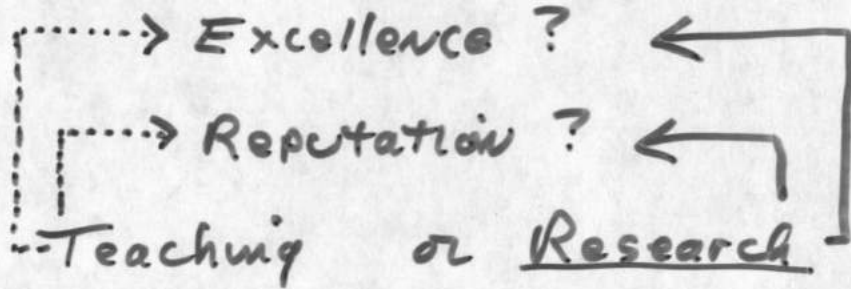 Excellence ?
Reputation ?
Teaching or Research